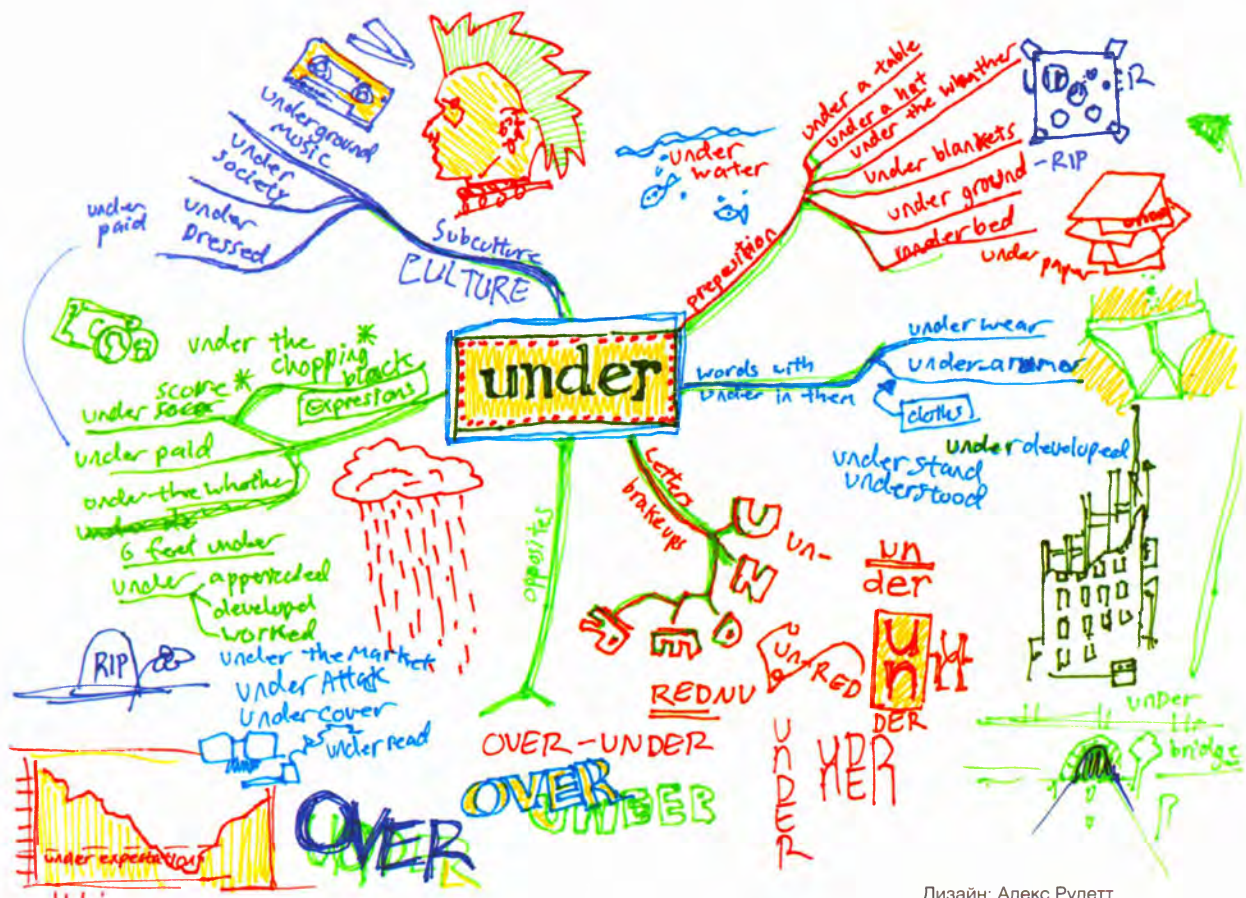 under
Subculture
CULTURE
underground
music
under
society
under
Dressed
under
paid
under
water
preposition
under a table
under a hat
under the wheather
under blankets
under ground
-RIP
under bed
under paper
words with
under in them
under wear
under armor
cloths
under developed
under stand
understood
under the
chopping
block
Expresions
score
under
under paid
under the whether
6 feet under
under
appericated
developed
worked
RIP
under the Market
under Attack
under cover
under read
under expestations
opposites
OVER-UNDER
OVER
UNDER
OVER
UNDER
Letters
brakeups
U
N
D
E
R
un-
un
der
REDNU
un-RED
un
DER
UNDER
under
bridge
Дизайн: Алекс Рулетт